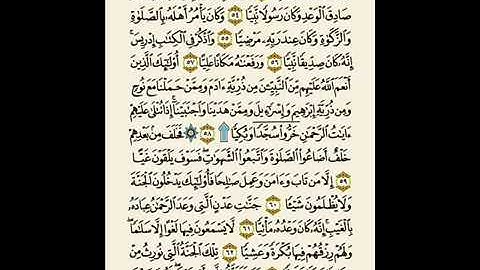 صَادِقَ ٱلْوَعْدِ وَكَانَ رَسُولًا نَّبِيًّا ٥٤ وَكَانَ يَأْمُرُ أَهْلَهُۥ بِٱلصَّلَوٰةِ
وَٱلزَّكَوٰةِ وَكَانَ عِندَ رَبِّهِۦ مَرْضِيًّا ٥٥ وَٱذْكُرْ فِى ٱلْكِتَٰبِ إِدْرِيسَ ۚ
إِنَّهُۥ كَانَ صِدِّيقًا نَّبِيًّا ٥٦ وَرَفَعْنَٰهُ مَكَانًا عَلِيًّا ٥٧ أُو۟لَٰٓئِكَ ٱلَّذِينَ
أَنْعَمَ ٱللَّهُ عَلَيْهِم مِّنَ ٱلنَّبِيِّـۧنَ مِن ذُرِّيَّةِ ءَادَمَ وَمِمَّنْ حَمَلْنَا مَعَ نُوحٍ
وَمِن ذُرِّيَّةِ إِبْرَٰهِيمَ وَإِسْرَٰٓءِيلَ وَمِمَّنْ هَدَيْنَا وَٱجْتَبَيْنَآ ۚ إِذَا تُتْلَىٰ عَلَيْهِمْ
ءَايَٰتُ ٱلرَّحْمَٰنِ خَرُّوا۟ سُجَّدًا وَبُكِيًّا ۩ ٥٨ ۞ فَخَلَفَ مِنۢ بَعْدِهِمْ
خَلْفٌ أَضَاعُوا۟ ٱلصَّلَوٰةَ وَٱتَّبَعُوا۟ ٱلشَّهَوَٰتِ ۖ فَسَوْفَ يَلْقَوْنَ غَيًّا
٥٩ إِلَّا مَن تَابَ وَءَامَنَ وَعَمِلَ صَٰلِحًا فَأُو۟لَٰٓئِكَ يَدْخُلُونَ ٱلْجَنَّةَ
وَلَا يُظْلَمُونَ شَيْـًٔا ٦٠ جَنَّٰتِ عَدْنٍ ٱلَّتِى وَعَدَ ٱلرَّحْمَٰنُ عِبَادَهُۥ
بِٱلْغَيْبِ ۚ إِنَّهُۥ كَانَ وَعْدُهُۥ مَأْتِيًّا ٦١ لَّا يَسْمَعُونَ فِيهَا لَغْوًا إِلَّا سَلَٰمًا ۖ
وَلَهُمْ رِزْقُهُمْ فِيهَا بُكْرَةً وَعَشِيًّا ٦٢ تِلْكَ ٱلْجَنَّةُ ٱلَّتِى نُورِثُ مِنْ